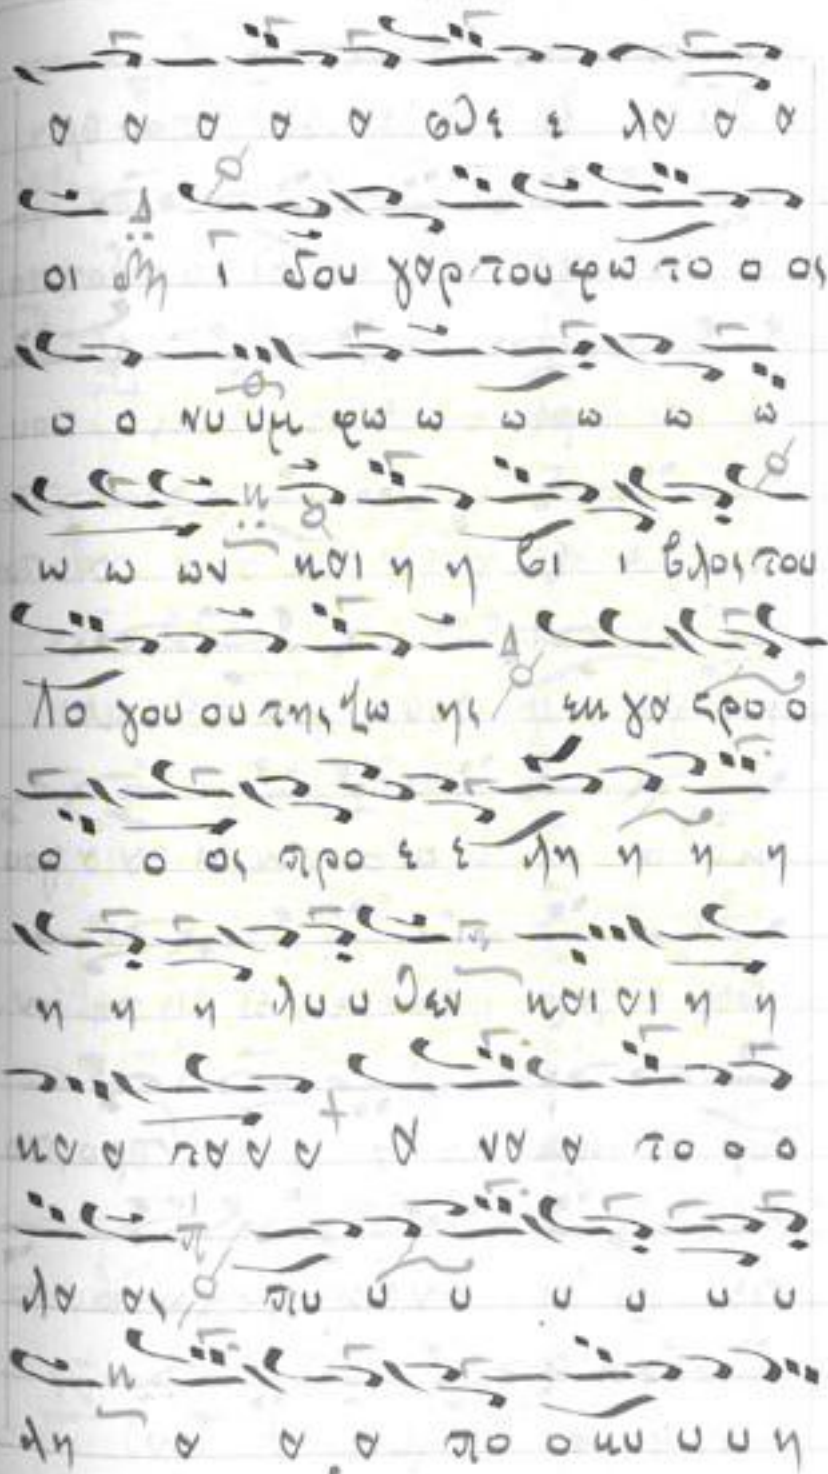 α α α α α σθε ε λα α α
οι Δη ι δου γαρ του φω το ο ος
ο ο νυ υμ φω ω ω ω ω ω
ω ω ων και η η βι ι βλος του
Λο γου ου της ζω ης εκ γα στρο ο
ο ο ος προ ε ε λη η η η
η η η λυ υ θεν και αι η η
κα α τα α α α να α το ο ο
λα ας πυ υ υ υ υ υ υ
λη α α α πο ο κυ υ υ η